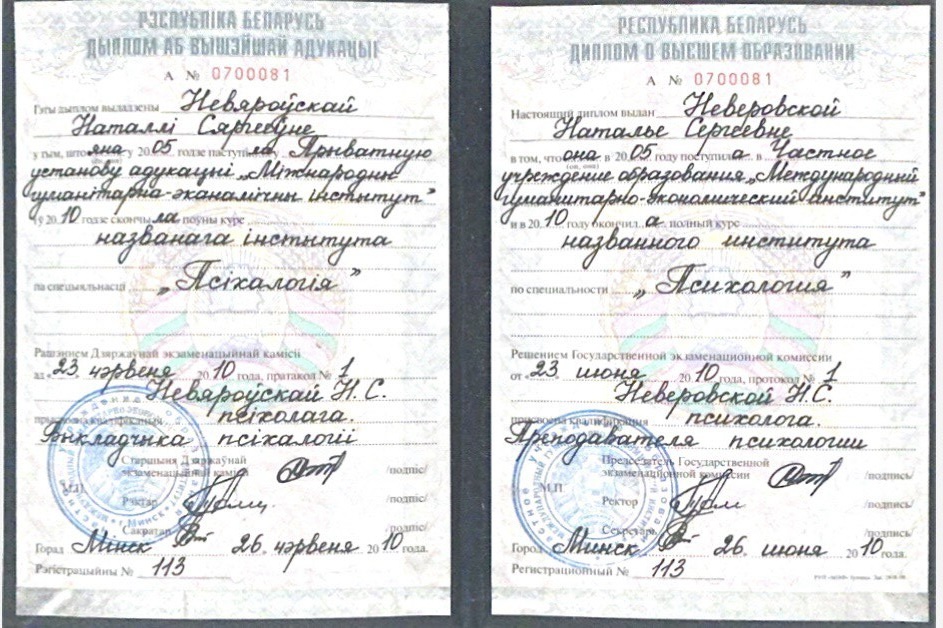 РЭСПУБЛІКА БЕЛАРУСЬ
ДЫПЛОМ АБ ВЫШЭЙШАЙ АДУКАЦЫІ
А № 0700081
Гэты дыплом выдадзены Невяроўскай
Наталлі Сяргееўне
у тым, што яна у 2005 годзе паступіла ў Прыватную
установу адукацыі „Міжнародны
гуманітарна-эканамічны інстытут"
і ў 2010 годзе скончыла поўны курс
названага інстытута
па спецыяльнасці „Псіхалогія"
Рашэннем Дзяржаўнай экзаменацыйнай камісіі
ад «23» чэрвеня 2010 года, пратакол № 1
Невяроўскай Н.С.
прысвоена кваліфікацыя псіхолага.
Выкладчыка псіхалогіі
Старшыня Дзяржаўнай
экзаменацыйнай камісіі /подпіс/
М.П.
Рэктар /подпіс/
Сакратар /подпіс/
Горад Мінск 26 чэрвеня 2010 года.
Рэгістрацыйны № 113
РЕСПУБЛИКА БЕЛАРУСЬ
ДИПЛОМ О ВЫСШЕМ ОБРАЗОВАНИИ
А № 0700081
Настоящий диплом выдан Неверовской
Наталье Сергеевне
в том, что она в 2005 году поступила в Частное
учреждение образования „Международный
гуманитарно-экономический институт"
и в 2010 году окончила полный курс
названного института
по специальности „Психология"
Решением Государственной экзаменационной комиссии
от «23» июня 2010 года, протокол № 1
Неверовской Н.С.
присвоена квалификация психолога.
Преподавателя психологии
Председатель Государственной
экзаменационной комиссии /подпись/
М.П.
Ректор /подпись/
Секретарь /подпись/
Город Минск 26 июня 2010 года.
Регистрационный № 113